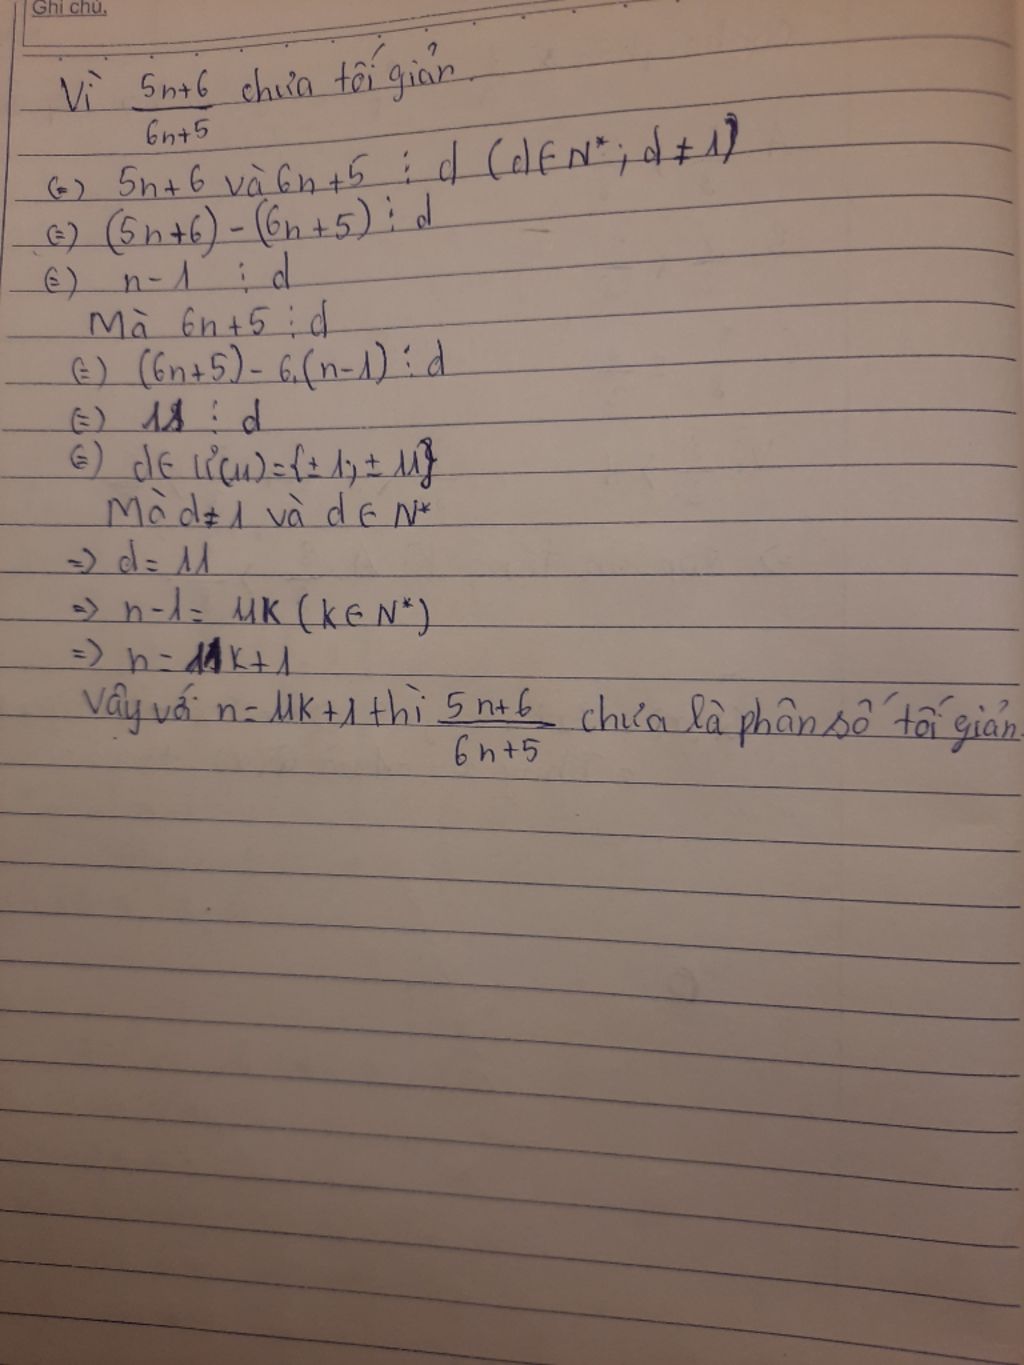 Ghi chú.
Vì 5n+6/6n+5 chưa tối giản.
(=) 5n+6 và 6n+5 ⋮ d (d∈N*; d≠1)
(=) (5n+6)-(6n+5) ⋮ d
(=) n-1 ⋮ d
Mà 6n+5 ⋮ d
(=) (6n+5)-6.(n-1) ⋮ d
(=) 11 ⋮ d
(=) d∈ Ư(11)={±1;±11}
Mà d≠1 và d∈N*
=> d= 11
=> n-1= 11K (K∈N*)
=> n= 11K+1
Vậy với n=11K+1 thì 5n+6/6n+5 chưa là phân số tối giản.